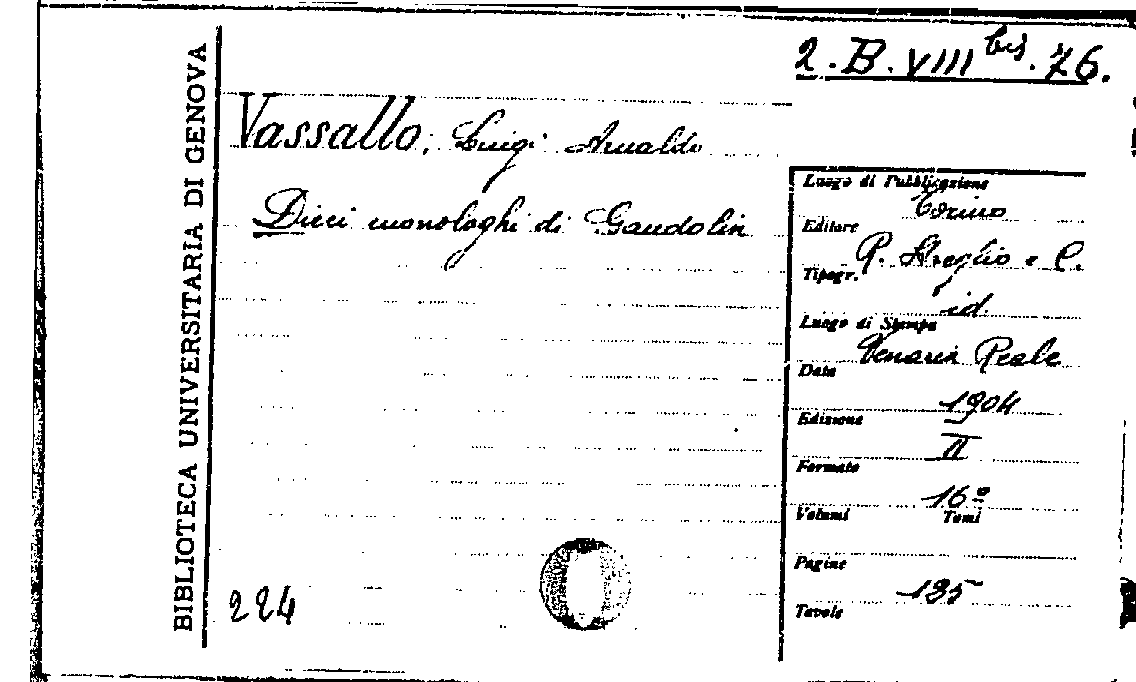 2.B.VIII bis.76.
BIBLIOTECA UNIVERSITARIA DI GENOVA
Vassallo, Luigi Arnaldo
Dieci monologhi di Gandolin
Luogo di Pubblicazione
Torino
Editore
P. Streglio e C.
Tipogr.
id.
Luogo di Stampa
Venaria Reale
Data
1904
Edizione
II
Formato
16º
Volumi Tomi
Pagine
195
Tavole
224